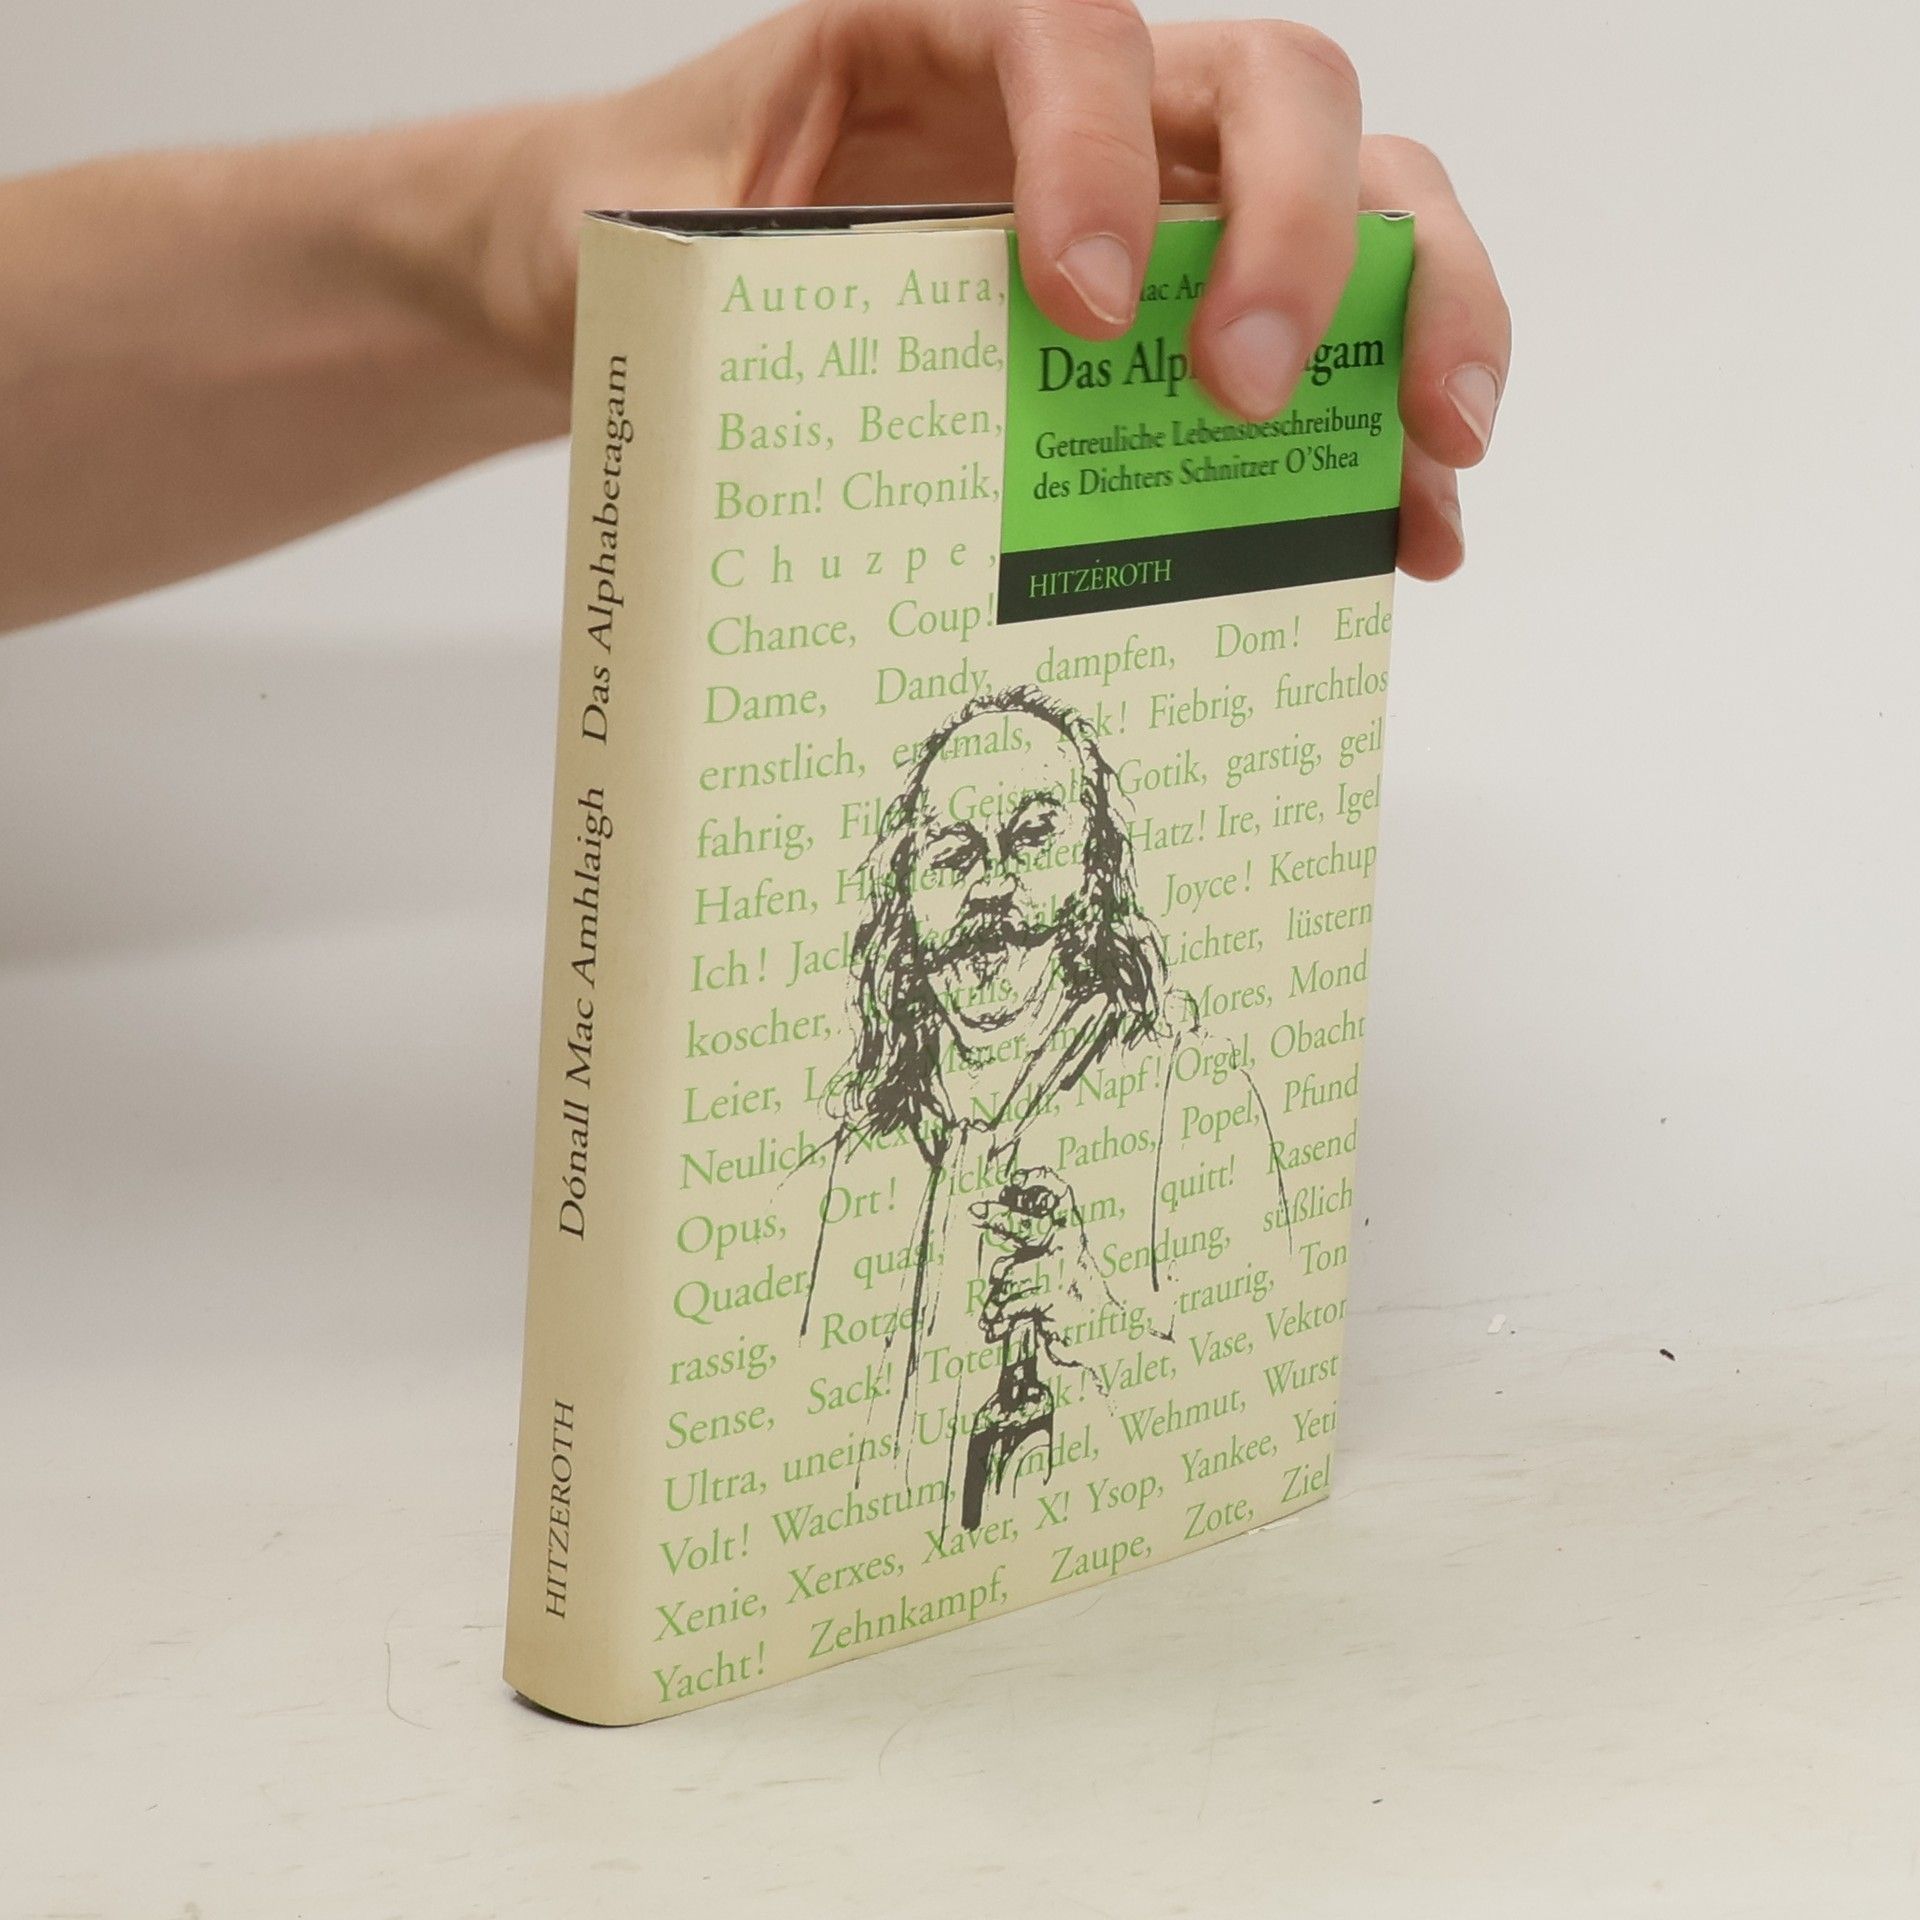 Dónall Mac Amhlaigh Das Alphabetagam
HITZEROTH
Das gam
Getreuliche Lebensbeschreibung
des Dichters Schnitzer O'Shea
HITZEROTH
Autor, Aura,
arid, All! Bande,
Basis, Becken,
Born! Chronik,
Chuzpe,
Chance, Coup!
Dame, Dandy, dampfen, Dom! Erde
ernstlich, erstmals, Eck! Fiebrig, furchtlos
fahrig, Film! Geistvoll, Gotik, garstig, geil
Hafen, hindern, Hatz! Ire, irre, Igel
Ich! Jacke, Joyce! Ketchup
koscher, Lichter, lüstern
Leier, Mores, Mond
Neulich, Nexus, Nadir, Napf! Orgel, Obacht
Opus, Ort! Pickel, Pathos, Popel, Pfund
Quader, quasi, Quorum, quitt! Rasend
rassig, Rotze, Reich! Sendung, süßlich
Sense, Sack! Totem, triftig, traurig, Ton
Ultra, uneins, Usus, Ulk! Valet, Vase, Vektor
Volt! Wachstum, Windel, Wehmut, Wurst
Xenie, Xerxes, Xaver, X! Ysop, Yankee, Yeti
Yacht! Zehnkampf, Zaupe, Zote, Ziel